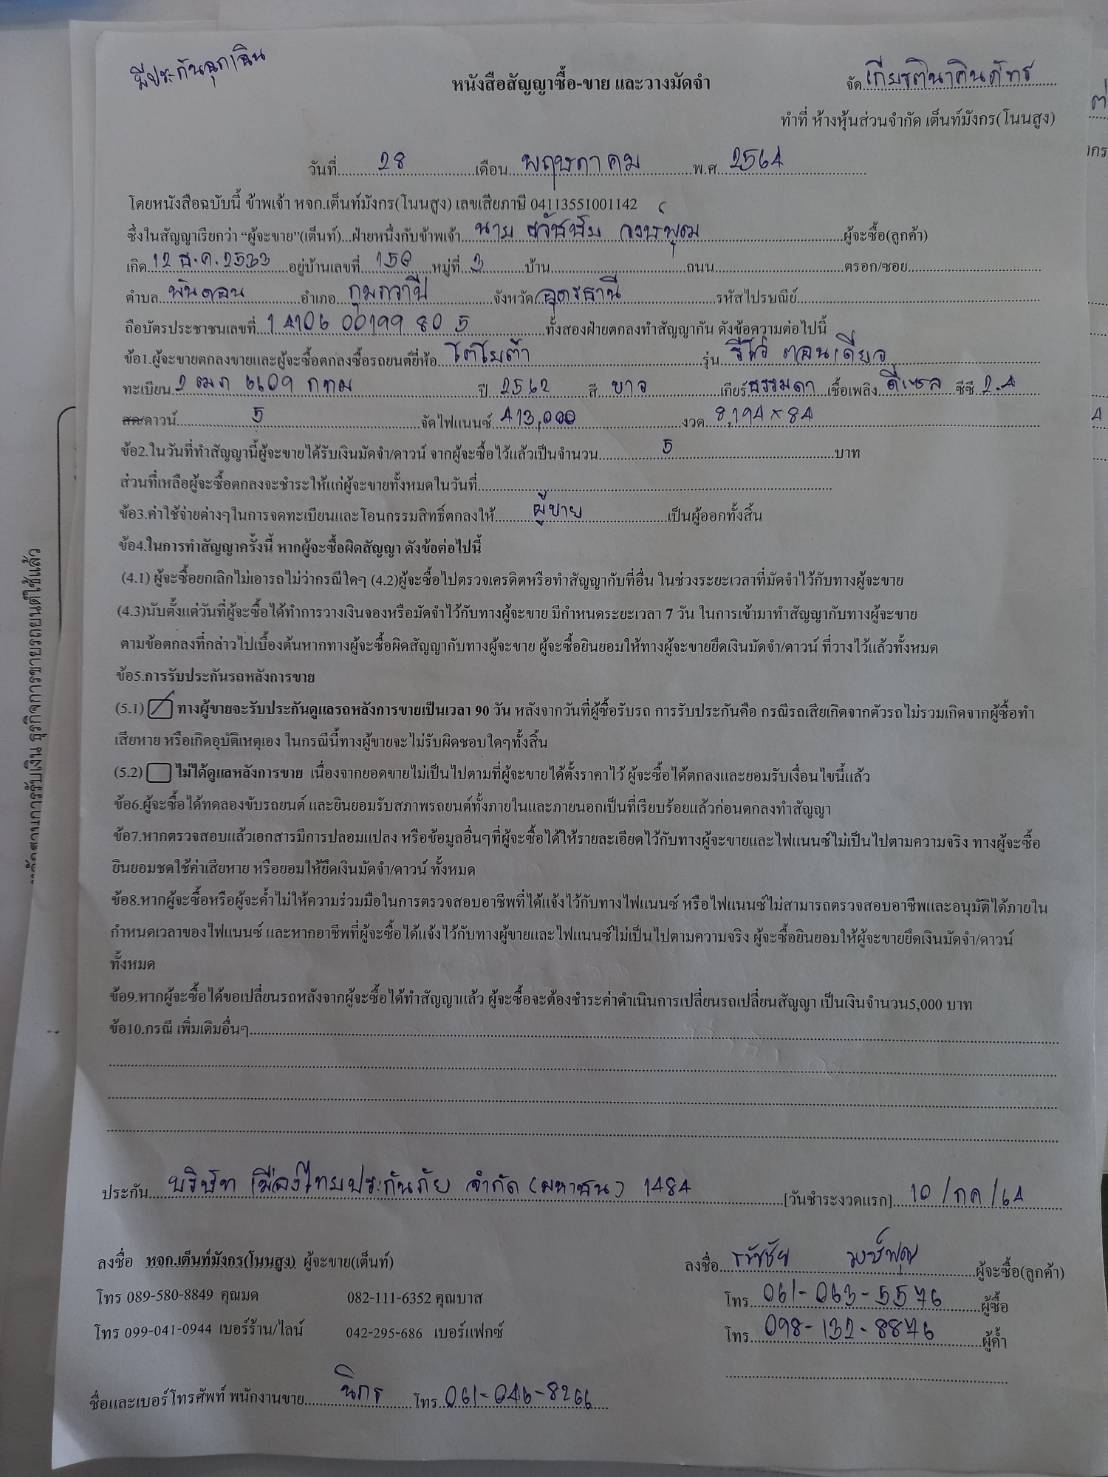 มีประกันฉุกเฉิน
หนังสือสัญญาซื้อ-ขาย และวางมัดจำ
จัด เกียรตินาคินภัทร
ทำที่ ห้างหุ้นส่วนจำกัด เต็นท์มังกร(โนนสูง)
วันที่ 28 เดือน พฤษภาคม พ.ศ. 2564
โดยหนังสือฉบับนี้ ข้าพเจ้า หจก.เต็นท์มังกร(โนนสูง) เลขเสียภาษี 04113551001142
ซึ่งในสัญญาเรียกว่า "ผู้จะขาย"(เต็นท์)...ฝ่ายหนึ่งกับข้าพเจ้า นาย ธวัชชัย วงษ์พุฒ ผู้จะซื้อ(ลูกค้า)
เกิด 12 ธ.ค. 2533 อยู่บ้านเลขที่ 156 หมู่ที่ 3 บ้าน ถนน ตรอก/ซอย
ตำบล พันดอน อำเภอ กุมภวาปี จังหวัด อุดรธานี รหัสไปรษณีย์
ถือบัตรประชาชนเลขที่ 1 4106 00199 80 5 ทั้งสองฝ่ายตกลงทำสัญญากัน ดังข้อความต่อไปนี้
ข้อ1.ผู้จะขายตกลงขายและผู้จะซื้อตกลงซื้อรถยนต์ยี่ห้อ โตโยต้า รุ่น รีโว่ ตอนเดียว
ทะเบียน 2 ฒภ 6609 กทม ปี 2562 สี ขาว เกียร์ ธรรมดา เชื้อเพลิง ดีเซล ซีซี 2.4
สด/ดาวน์ 5 จัดไฟแนนซ์ 413,000 งวด 8,194 x 84
ข้อ2.ในวันที่ทำสัญญานี้ผู้จะขายได้รับเงินมัดจำ/ดาวน์ จากผู้จะซื้อไว้แล้วเป็นจำนวน 5 บาท
ส่วนที่เหลือผู้จะซื้อตกลงจะชำระให้แก่ผู้จะขายทั้งหมดในวันที่
ข้อ3.ค่าใช้จ่ายต่างๆในการจดทะเบียนและโอนกรรมสิทธิ์ตกลงให้ ผู้ขาย เป็นผู้ออกทั้งสิ้น
ข้อ4.ในการทำสัญญาครั้งนี้ หากผู้จะซื้อผิดสัญญา ดังข้อต่อไปนี้
(4.1) ผู้จะซื้อยกเลิกไม่เอารถไม่ว่ากรณีใดๆ (4.2)ผู้จะซื้อไปตรวจเครดิตหรือทำสัญญากับที่อื่น ในช่วงระยะเวลาที่มัดจำไว้กับทางผู้จะขาย
(4.3)นับตั้งแต่วันที่ผู้จะซื้อได้ทำการวางเงินจองหรือมัดจำไว้กับทางผู้จะขาย มีกำหนดระยะเวลา 7 วัน ในการเข้ามาทำสัญญากับทางผู้จะขาย
ตามข้อตกลงที่กล่าวไปเบื้องต้นหากทางผู้จะซื้อผิดสัญญากับทางผู้จะขาย ผู้จะซื้อยินยอมให้ทางผู้จะขายยึดเงินมัดจำ/ดาวน์ ที่วางไว้แล้วทั้งหมด
ข้อ5.การรับประกันรถหลังการขาย
(5.1) ทางผู้ขายจะรับประกันดูแลรถหลังการขายเป็นเวลา 90 วัน หลังจากวันที่ผู้ซื้อรับรถ การรับประกันคือ กรณีรถเสียเกิดจากตัวรถไม่รวมเกิดจากผู้ซื้อทำ
เสียหาย หรือเกิดอุบัติเหตุเอง ในกรณีนี้ทางผู้ขายจะไม่รับผิดชอบใดๆทั้งสิ้น
(5.2) ไม่ได้ดูแลหลังการขาย เนื่องจากยอดขายไม่เป็นไปตามที่ผู้จะขายได้ตั้งราคาไว้ ผู้จะซื้อได้ตกลงและยอมรับเงื่อนไขนี้แล้ว
ข้อ6.ผู้จะซื้อได้ทดลองขับรถยนต์ และยินยอมรับสภาพรถยนต์ทั้งภายในและภายนอกเป็นที่เรียบร้อยแล้วก่อนตกลงทำสัญญา
ข้อ7.หากตรวจสอบแล้วเอกสารมีการปลอมแปลง หรือข้อมูลอื่นๆที่ผู้จะซื้อได้ให้รายละเอียดไว้กับทางผู้จะขายและไฟแนนซ์ไม่เป็นไปตามความจริง ทางผู้จะซื้อ
ยินยอมชดใช้ค่าเสียหาย หรือยอมให้ยึดเงินมัดจำ/ดาวน์ ทั้งหมด
ข้อ8.หากผู้จะซื้อหรือผู้จะค้ำไม่ให้ความร่วมมือในการตรวจสอบอาชีพที่ได้แจ้งไว้กับทางไฟแนนซ์ หรือไฟแนนซ์ไม่สามารถตรวจสอบอาชีพและอนุมัติได้ภายใน
กำหนดเวลาของไฟแนนซ์ และหากอาชีพที่ผู้จะซื้อได้แจ้งไว้กับทางผู้ขายและไฟแนนซ์ไม่เป็นไปตามความจริง ผู้จะซื้อยินยอมให้ผู้จะขายยึดเงินมัดจำ/ดาวน์
ทั้งหมด
ข้อ9.หากผู้จะซื้อได้ขอเปลี่ยนรถหลังจากผู้จะซื้อได้ทำสัญญาแล้ว ผู้จะซื้อจะต้องชำระค่าดำเนินการเปลี่ยนรถเปลี่ยนสัญญา เป็นเงินจำนวน5,000 บาท
ข้อ10.กรณี เพิ่มเติมอื่นๆ
ประกัน บริษัท เมืองไทยประกันภัย จำกัด (มหาชน) 1484 [วันชำระงวดแรก] 10 / กค / 64
ลงชื่อ หจก.เต็นท์มังกร(โนนสูง) ผู้จะขาย(เต็นท์)
ลงชื่อ ธวัชชัย วงษ์พุฒ ผู้จะซื้อ(ลูกค้า)
โทร 089-580-8849 คุณมด 082-111-6352 คุณบาส
โทร 061-063-5576 ผู้ซื้อ
โทร 099-041-0944 เบอร์ร้าน/ไลน์ 042-295-686 เบอร์แฟกซ์
โทร 098-132-8876 ผู้ค้ำ
ชื่อและเบอร์โทรศัพท์ พนักงานขาย นิกร โทร 061-046-8266
ธุรกิจการขายรถยนต์ใช้แล้ว